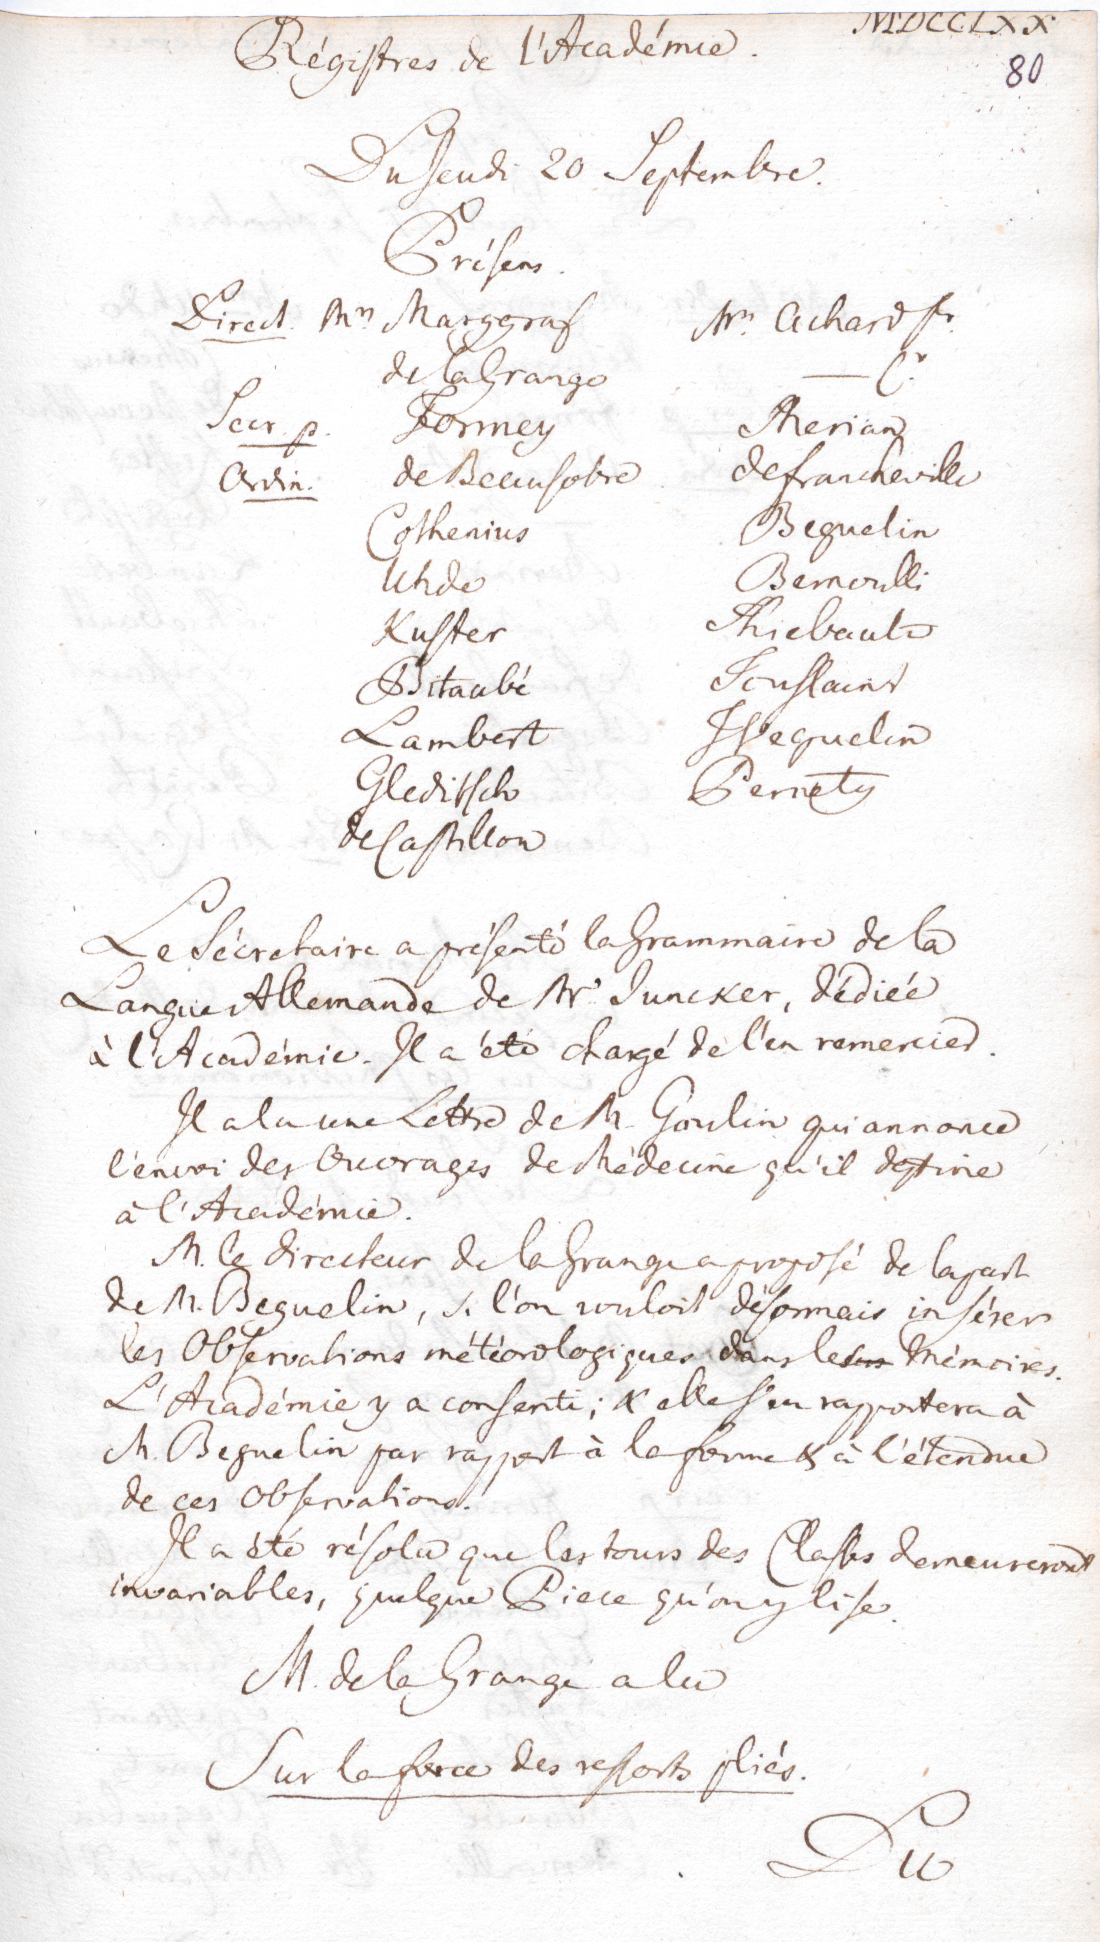 MDCCLXX
Régistres de l'Académie.
80
Du Jeudi 20 Septembre.
Présens.
Direct. Mrs Marggraf
de la Grange
Secr. p. Formey
Ordin. de Beausobre
Cothenius
Uhde
Kuster
Bitaubé
Lambert
Gleditsch
de Castillon
Mrs Achard fr.
— C.
Merian
de Francheville
Beguelin
Bernoulli
Thiebault
Toussaint
Weguelin
Pernety
Le Sécretaire a présenté la Grammaire de la
Langue Allemande de Mr. Juncker, dédiée
à l'Académie. Il a été chargé de l'en remercier.
Il a lu une Lettre de M. Goulin qui annonce
l'envoi des Ouvrages de Médecine qu'il destine
à l'Académie.
M. le Directeur de la Grange a proposé de la part
de M. Beguelin, si l'on vouloit désormais insérer
les Observations météorologiques dans les Mémoires.
L'Académie y a consenti; & elle s'en rapportera à
M. Beguelin par rapport à la forme & à l'étendue
de ces Observations.
Il a été résolu que les tours des Classes demeureront
invariables, quelque Piece qu'on y lise.
M. de la Grange a lu
Sur la force des ressorts pliés.
Du